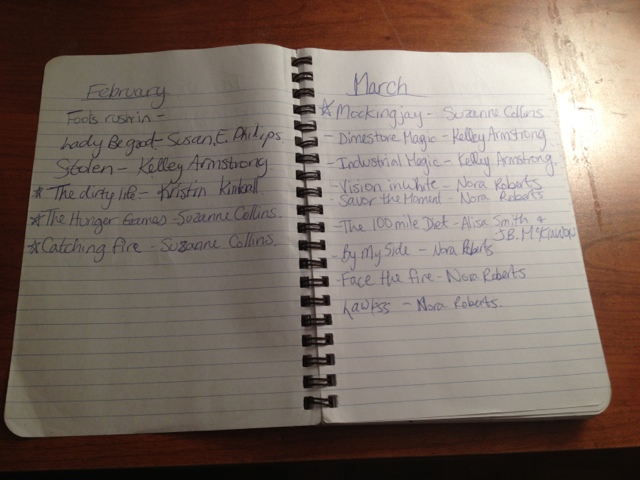 February
Fools rush in -
Lady Be good - Susan. E. Philips
Stolen - Kelley Armstrong
☆ The dirty life - Kristin Kimball
☆ The Hunger Games - Suzanne Collins.
☆ Catching fire - Suzanne Collins.
March
☆ Mockingjay - Suzanne Collins
- Dimestore Magic - Kelley Armstrong
- Industrial Magic - Kelley Armstrong.
- Vision in white - Nora Roberts
- Savor the Moment - Nora Roberts
- The 100 mile Diet - Alisa Smith &
J.B. McKinnon
- By My Side - Nora Roberts
- Face the fire - Nora Roberts
- Lawless - Nora Roberts.